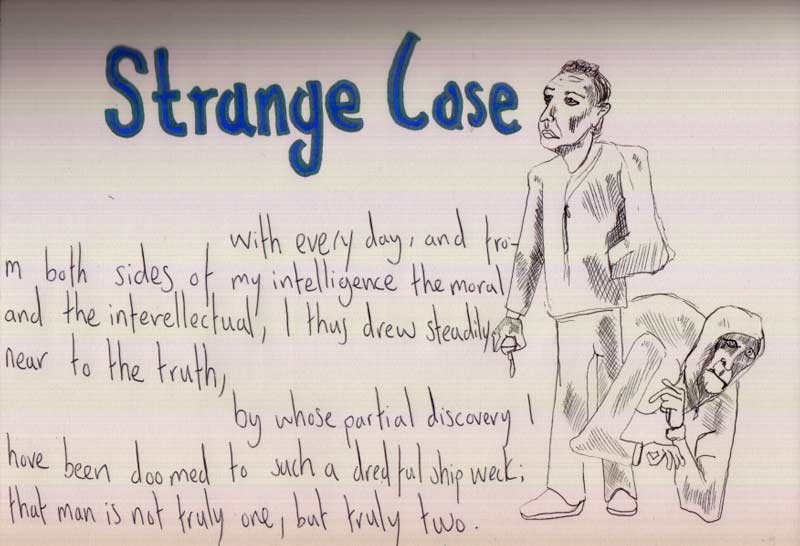 Strange Case
with every day, and fro-
m both sides of my intelligence the moral
and the interellectual, I thus drew steadily
near to the truth,
by whose partial discovery I
have been doomed to such a dredful ship weck;
that man is not truly one, but truly two.